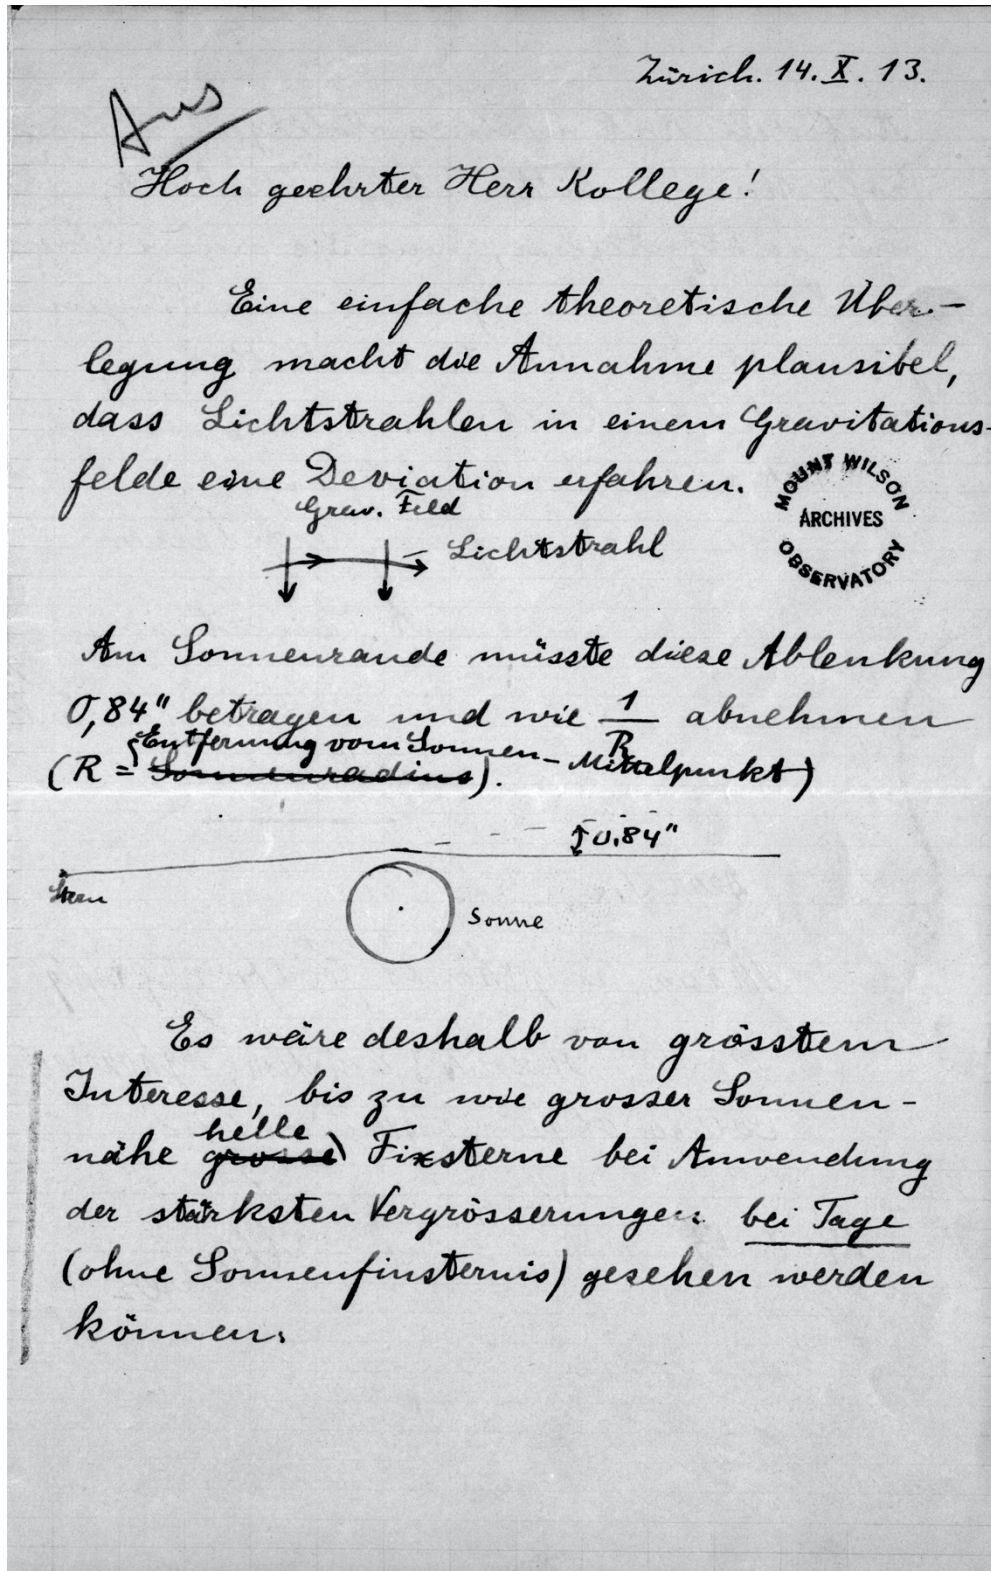 Zürich. 14. X. 13.
Aus
Hoch geehrter Herr Kollege!
Eine einfache theoretische Über-
legung macht die Annahme plausibel,
dass Lichtstrahlen in einem Gravitations-
felde eine Deviation erfahren.
MOUNT WILSON
ARCHIVES
OBSERVATORY
Grav. Feld
Lichtstrahl
Am Sonnenrande müsste diese Ablenkung
0,84" betragen und wie 1/R abnehmen
Entfernung vom Sonnen-Mittelpunkt)
(R = Sonnenradius).
0.84"
Stern
Sonne
Es wäre deshalb von grösstem
Interesse, bis zu wie grosser Sonnen-
helle
nähe grosse Fixsterne bei Anwendung
der stärksten Vergrösserungen bei Tage
(ohne Sonnenfinsternis) gesehen werden
können.